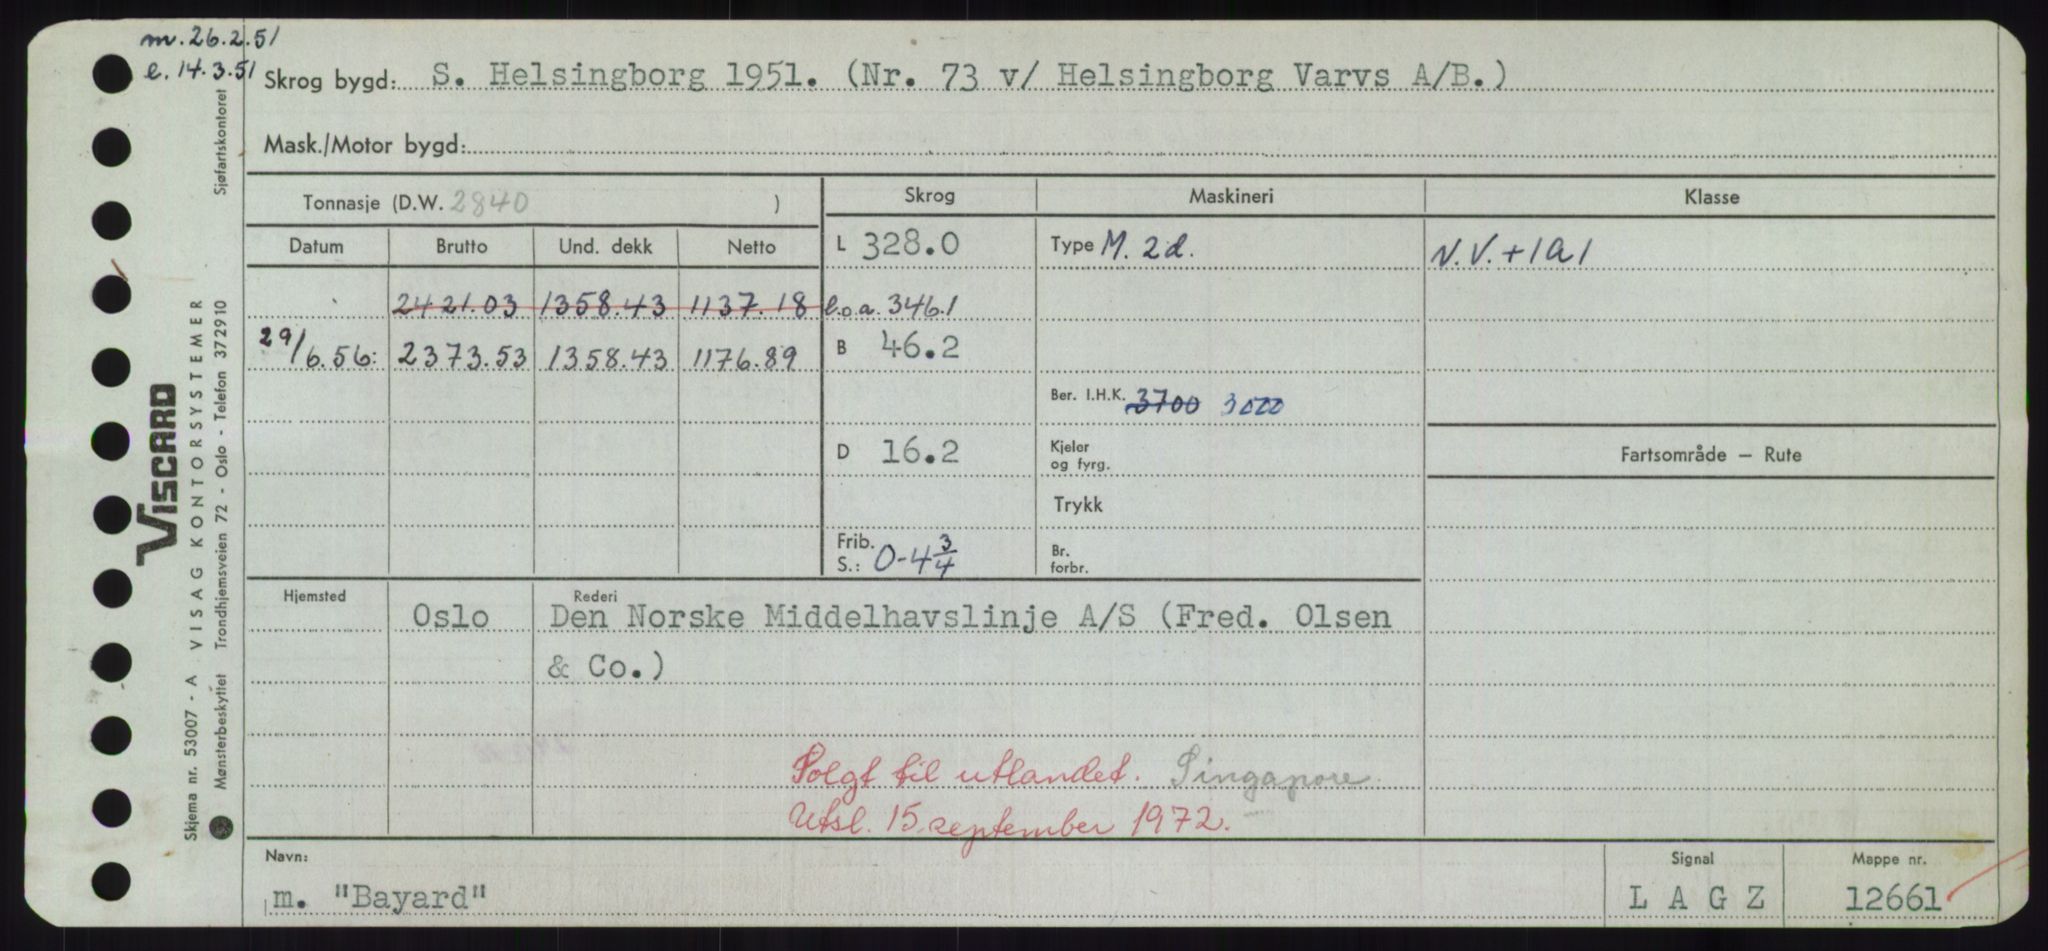 m. 26.2.51
e. 14.3.51
Skrog bygd: S. Helsingborg 1951. (Nr. 73 v/ Helsingborg Varvs A/B.)
Mask./Motor bygd:
Tonnasje (D.W. 2840 )
Skrog
Maskineri
Klasse
Datum Brutto Und. dekk Netto
L 328.0
Type M. 2d.
N.V. +1A1
2421.03 1358.43 1137.18
l.o.a. 346.1
29/6.56: 2373.53 1358.43 1176.89
B 46.2
Ber. I.H.K. 3700 3000
D 16.2
Kjeler
og fyrg.
Fartsområde — Rute
Trykk
Frib.
S.: 0-4 3/4
Br.
forbr.
Hjemsted
Rederi
Oslo Den Norske Middelhavslinje A/S (Fred. Olsen
& Co.)
Solgt til utlandet. Singapore
Utsl. 15. september 1972.
Navn:
m. "Bayard"
Signal
L A G Z
Mappe nr.
12661
VISCARD
Skjema nr. 53007 - A VISAG KONTORSYSTEMER
Mønsterbeskyttet Trondhjemsveien 72 - Oslo - Telefon 372910 Sjøfartskontoret